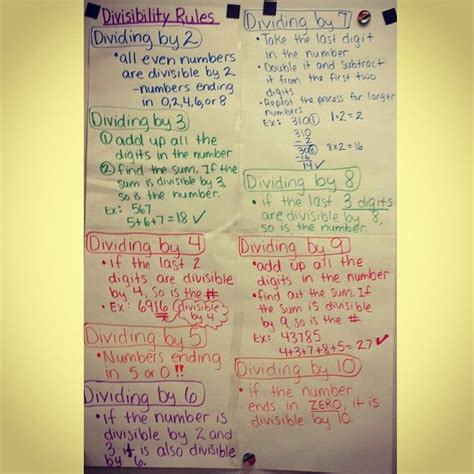 Divisibility Rules
Dividing by 2
•all even numbers
are divisible by 2
-numbers ending
in 0,2,4,6,or 8
Dividing by 3
① add up all the
digits in the number
② find the sum. If the
sum is divisible by 3,
so is the number.
Ex: 567
5+6+7=18 ✓
Dividing by 4
•if the last 2
digits are divisible
by 4, so is the #
•Ex: 6916 divisible
by 4
Dividing by 5
•Numbers ending
in 5 or 0!!
Dividing by 6
•if the number is
divisible by 2 and
3, it is also divisible
by 6.
Dividing by 7
•Take the last digit
in the number
•Double it and subtract
it from the first two
digits
•Repeat the process for longer
numbers
Ex: 3101 1×2=2
310
-2
308 8×2=16
-16
14 ✓
Dividing by 8
•if the last 3 digits
are divisible by 8,
so is the number.
Dividing by 9
•add up all the
digits in the number
•find out the sum. If
the sum is divisible
by 9, so is the #.
Ex: 43785
4+3+7+8+5=27 ✓
Dividing by 10
•if the number
ends in ZERO, it is
divisible by 10.